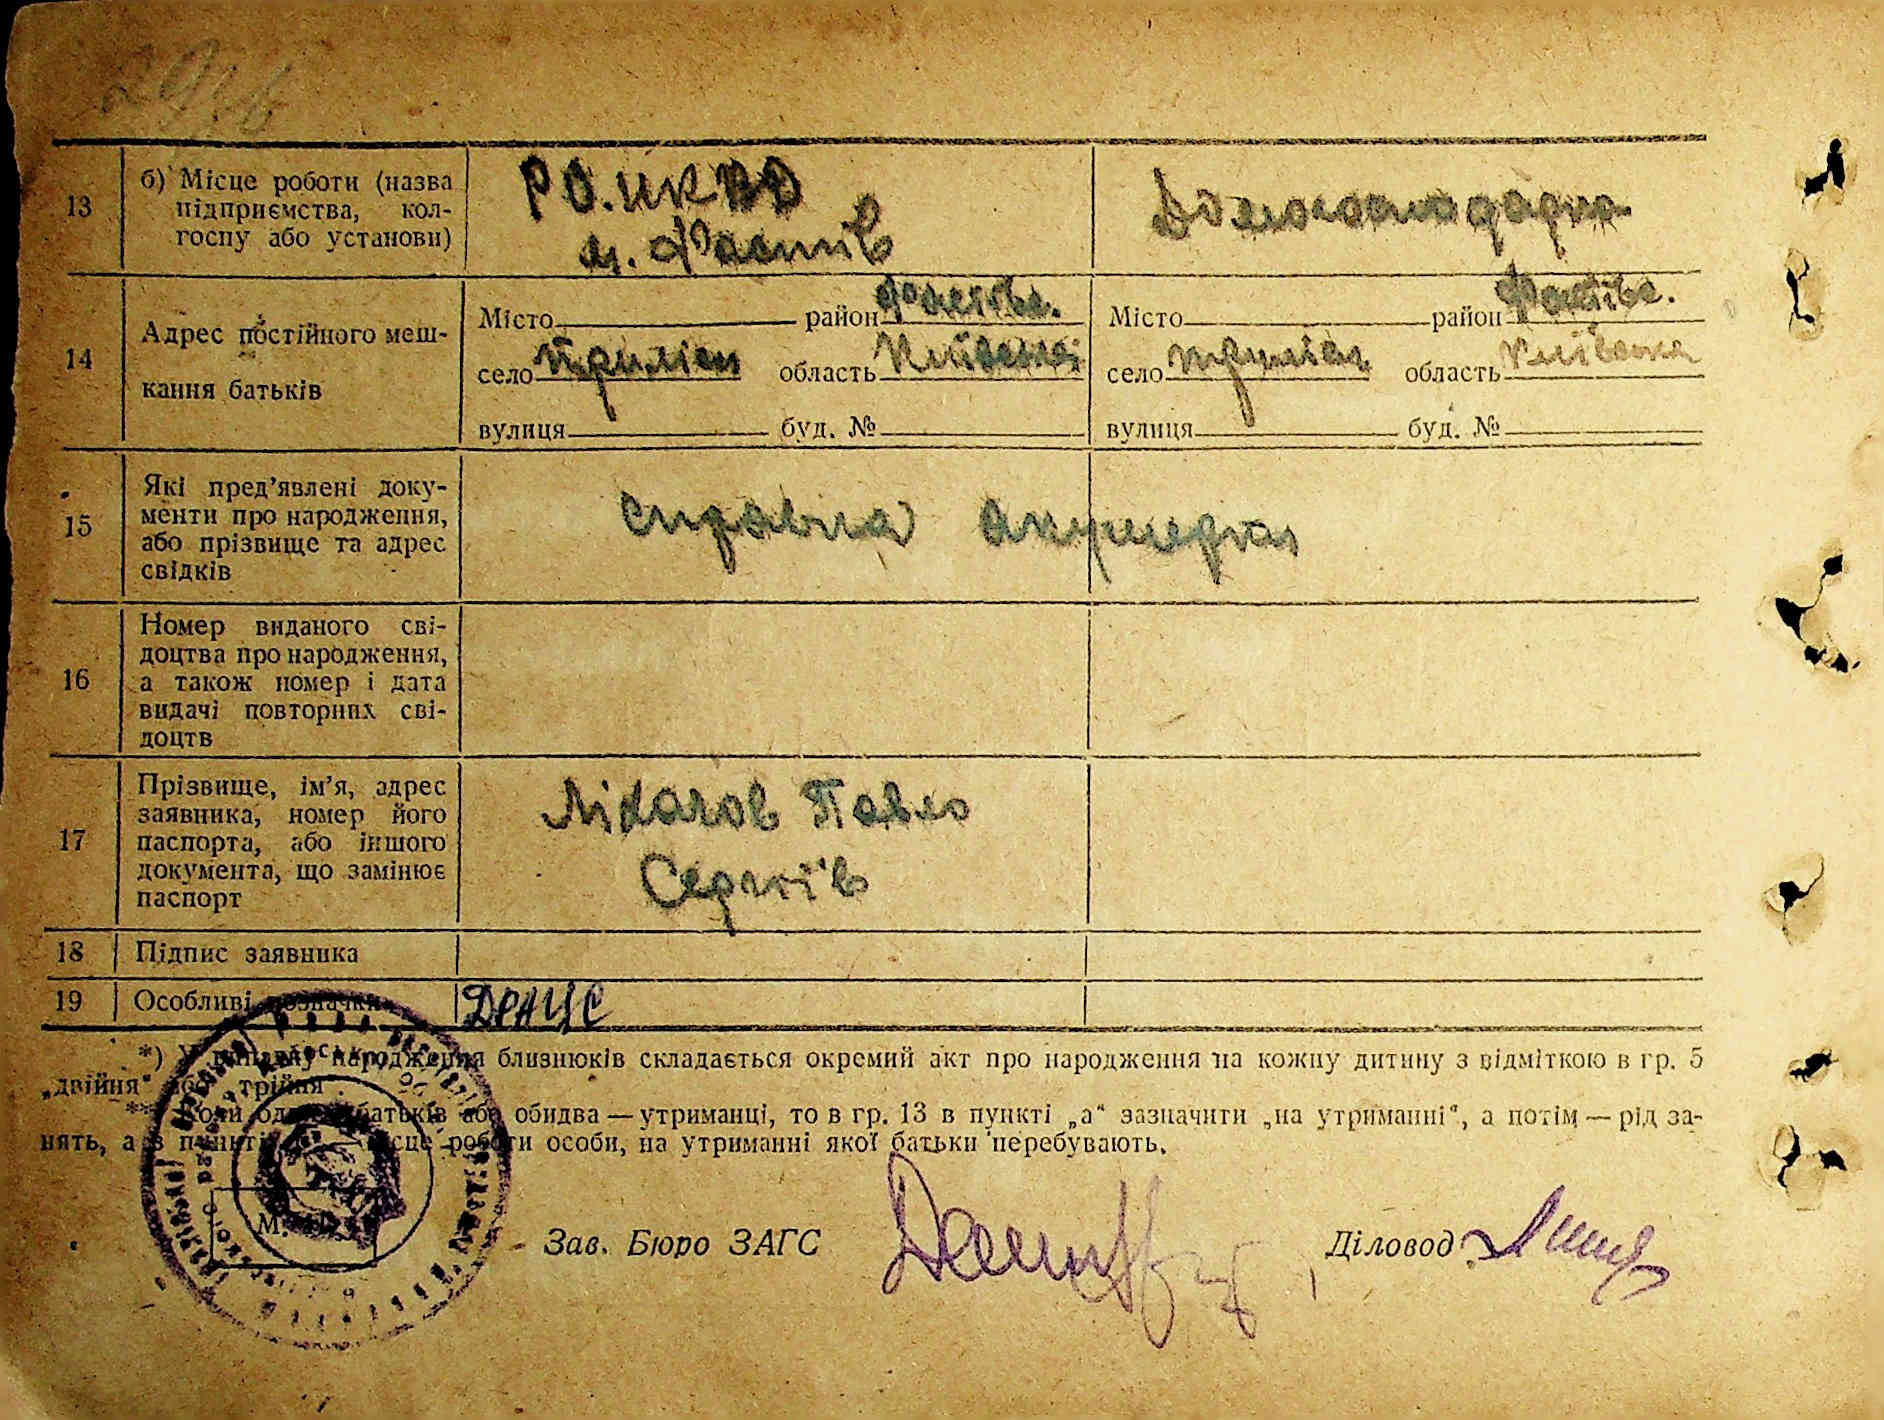 13
б) Місце роботи (назва
підприємства, кол-
госпу або установи)
РО.НКВД
м. Фастів
Домогосподарка
14
Адрес постійного меш-
кання батьків
Місто район Фастівс.
село Триліси область Київської
вулиця буд. №
Місто район Фастівс.
село Триліси область Київська
вулиця буд. №
15
Які пред’явлені доку-
менти про народження,
або прізвище та адрес
свідків
справка акушерки
16
Номер виданого сві-
доцтва про народження,
а також номер і дата
видачі повторних сві-
доцтв
17
Прізвище, ім’я, адрес
заявника, номер його
паспорта, або іншого
документа, що замінює
паспорт
Ліхачов Павло
Сергіїв
18 Підпис заявника
19 Особливі позначки
ДРАЦС
*) У випадку народження близнюків складається окремий акт про народження на кожну дитину з відміткою в гр. 5
„двійня“ або трійня
** Коли один з батьків або обидва — утриманці, то в гр. 13 в пункті „а“ зазначити „на утриманні“, а потім — рід за-
нять, а в пункті місце роботи особи, на утриманні якої батьки перебувають.
М.
Зав. Бюро ЗАГС
Діловод